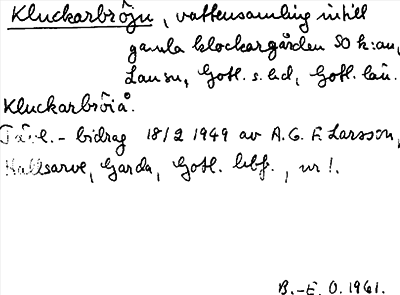 Kluckarbröju, vattensamling intill
gamla klockargården SO k:an,
Lau sn, Gotl. s. hd, Gotl. län.
Kluckarbröiå.
Tävl.-bidrag 18/2 1949 av A. G. F. Larsson,
Hallsarve, Garda, Gotl. hbf., nr 1.
B.-E. O. 1961.